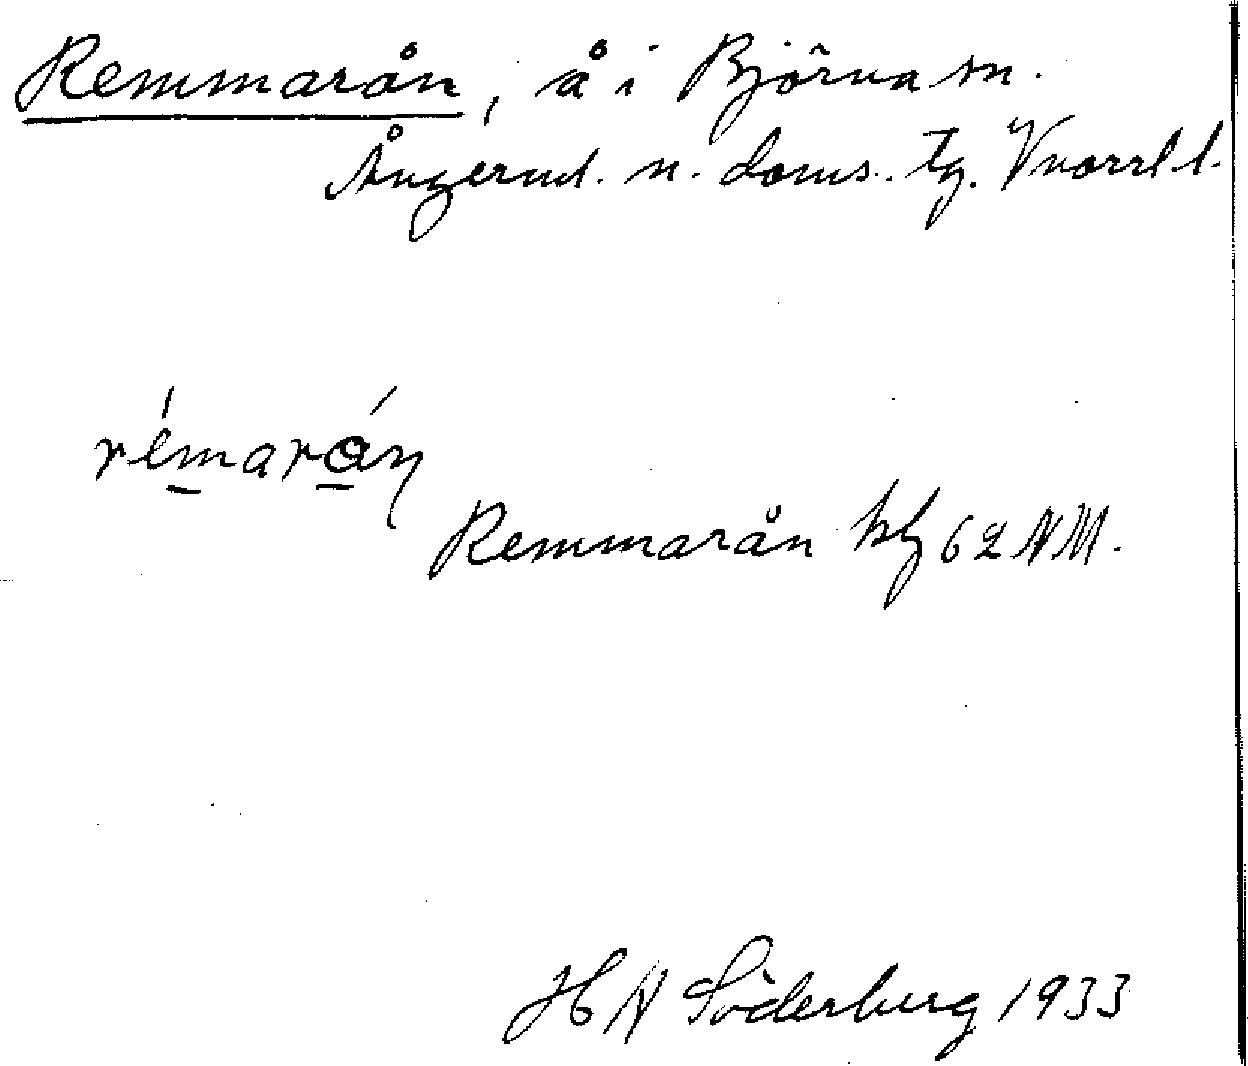 Remmarån, å i Björna sn.
Ångerml. n. doms. tg. Vnorrl l.
rémarån
Remmarån kbl 62 NM.
H A Söderberg 1933